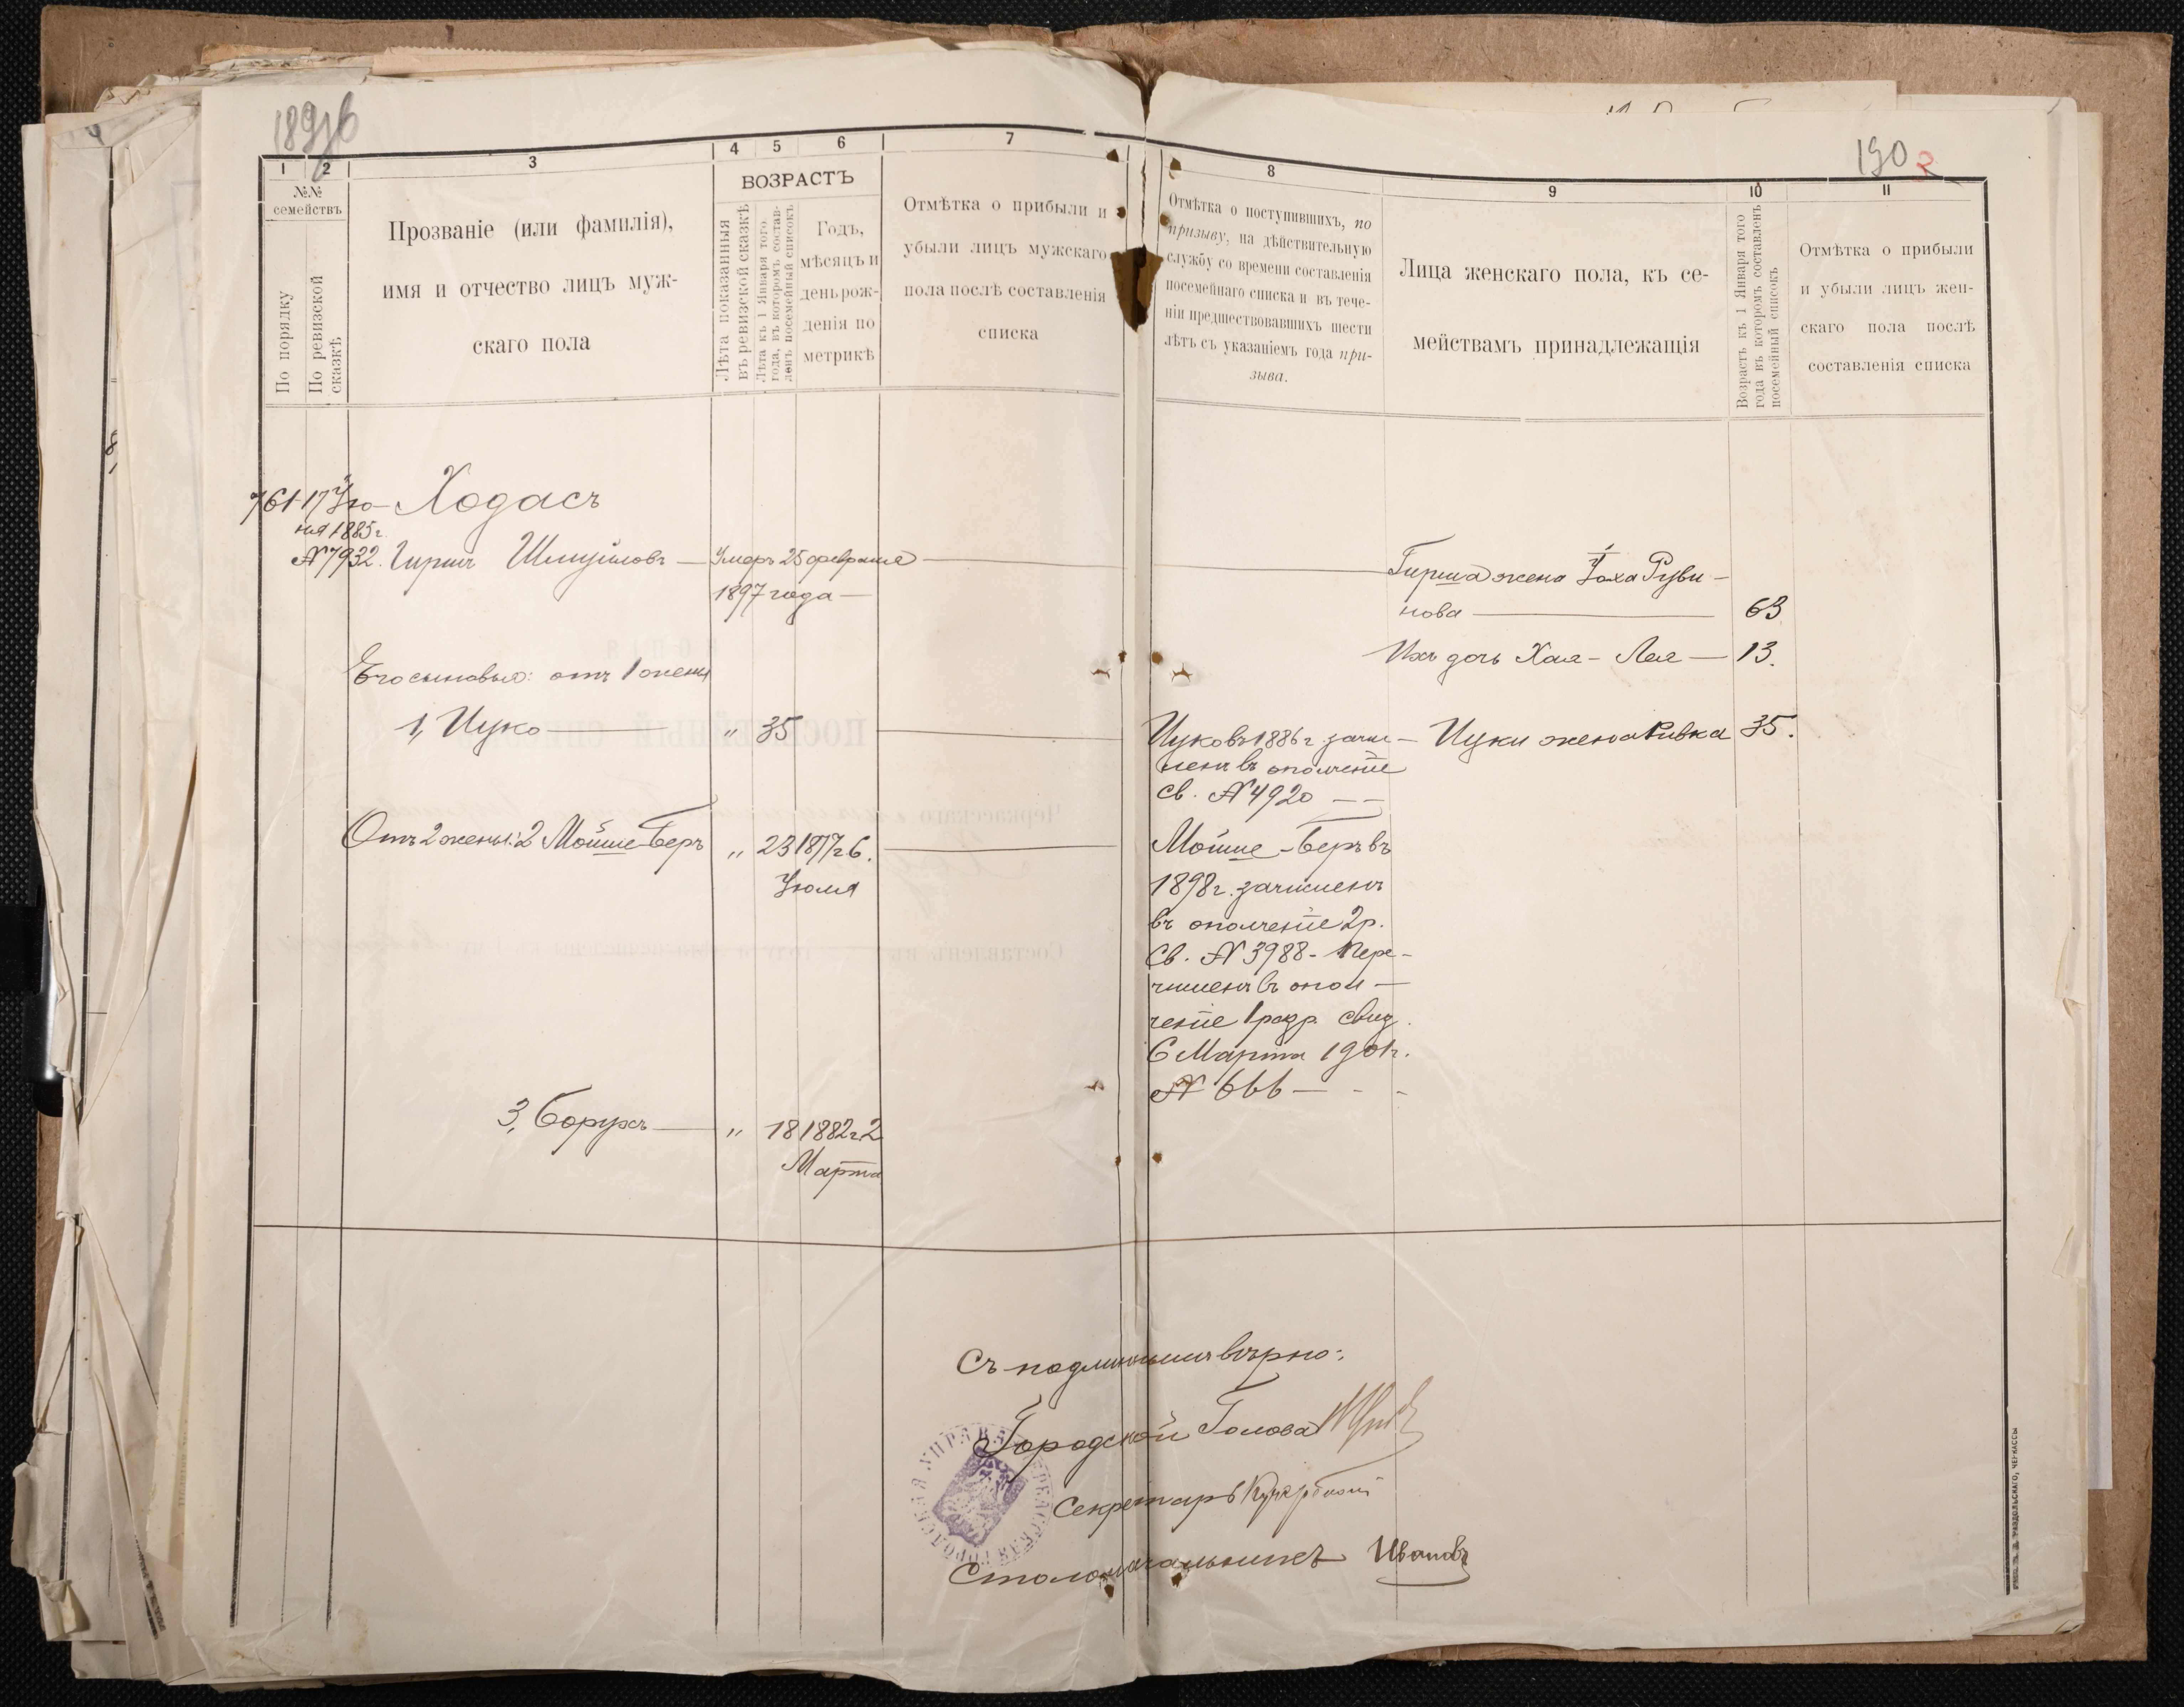 189
190
1
2
3
4
5
6
7
№№
семействъ
По порядку
По ревизской
сказкѣ
Прозваніе (или фамилія),
имя и отчество лицъ муж-
скаго пола
ВОЗРАСТЪ
Лѣта показанныя
въ ревизской сказкѣ
Лѣта къ 1 Января того
года, въ которомъ состав-
ленъ посемейный списокъ
Годъ,
мѣсяцъ и
день рож-
денія по
метрикѣ
Отмѣтка о прибыли и
убыли лицъ мужскаго
пола послѣ составленія
списка
8
9
10
11
Отмѣтка о поступившихъ, по
призыву, на дѣйствительную
службу со времени составленія
посемейнаго списка и въ тече-
ніи предшествовавшихъ шести
лѣтъ съ указаніемъ года при-
зыва.
Лица женскаго пола, къ се-
мействамъ принадлежащія
Возрастъ къ 1 Января того
года въ которомъ составленъ
посемейный списокъ
Отмѣтка о прибыли
и убыли лицъ жен-
скаго пола послѣ
составленія списка
761 17 Ію- Ходасъ
ня 1885 г.
№ 7932. Гиршъ Шмуйловъ — Умеръ 25 февраля
1897 года —
Гирша жена Хаха Руви-
нова — 63
Ихъ дочь Хая-Лея — 13.
Его сыновья: отъ 1 жены
1, Ицко — " 35
Ицко въ 1886 г. зачи-
сленъ въ ополченіе
св. № 4920 — —
Ицки жена Ривка 35.
Отъ 2 жены: 2 Мойше-Беръ " 23 1877 г. 6.
Іюля
Мойше-Беръ въ
1898 г. зачисленъ
въ ополченіе 2 р.
Св. № 3988 - Пере-
численъ въ опол-
ченіе 1 разр. свид.
6 Марта 1901 г.
№ 666 — - -
3, Борухъ — " 18 1882 г. 2
Марта
Съ подлиннымъ вѣрно:
Городской Голова
Секретарь
Столоначальникъ Ивановъ
ЧЕРКАССКАЯ ГОРОДСКАЯ УПРАВА
РАЗДОЛЬСКАГО, ЧЕРКАССЫ